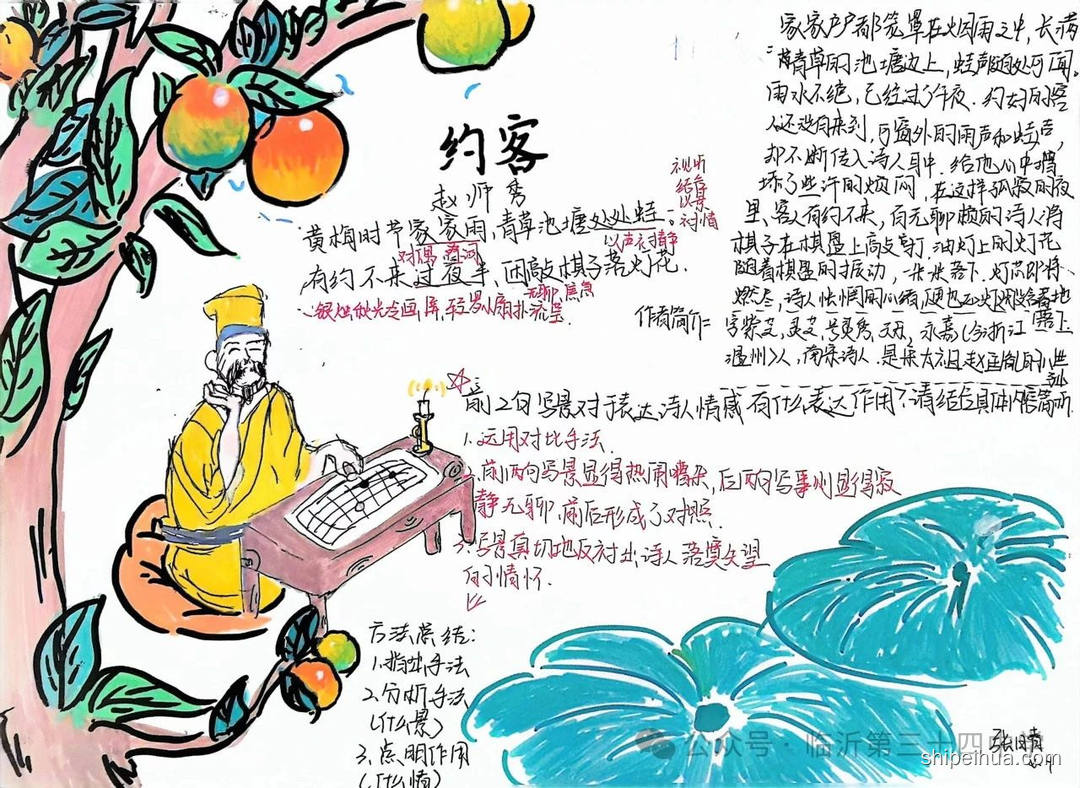 约客
赵师秀
黄梅时节家家雨,青草池塘处处蛙。
有约不来过夜半,闲敲棋子落灯花.
视听
结合
以景
衬情
以声衬静
对偶
无聊,焦急
银烛秋光冷画屏,轻罗小扇扑流萤.
家家户户都笼罩在烟雨之中,长满
青草的池塘边上,蛙声随处可闻。
雨水不绝,已经过了午夜.约好的客
人还没有来到,而窗外的雨声和蛙声,
却不断传入诗人耳中.给他心中增
添了些许的烦闷.在这样孤寂的夜
里,客人有约不来,百无聊赖的诗人将
棋子在棋盘上敲打.油灯上的灯花
随着棋盘的振动,
落下.灯芯即将
燃尽,诗人怅惘的心绪,
落地
作者简介:
字紫芝,灵芝,号灵秀,
永嘉(今浙江
温州)人,南宋诗人.是宋太祖赵匡胤的八世
孙
前2句写景对于表达诗人情感有什么表达作用?请结合具体内容简析.
1.运用对比手法.
2.前两句写景显得热闹嘈杂,后两句写事则显得寂
静无聊,前后形成了对照.
3.写景真切地反衬出诗人落寞失望
的情怀.
方法总结:
1.指出手法
2.分析手法
(什么景)
3.点明作用
(什么情)
公众号·临沂第三十四中学
shipeihua.com